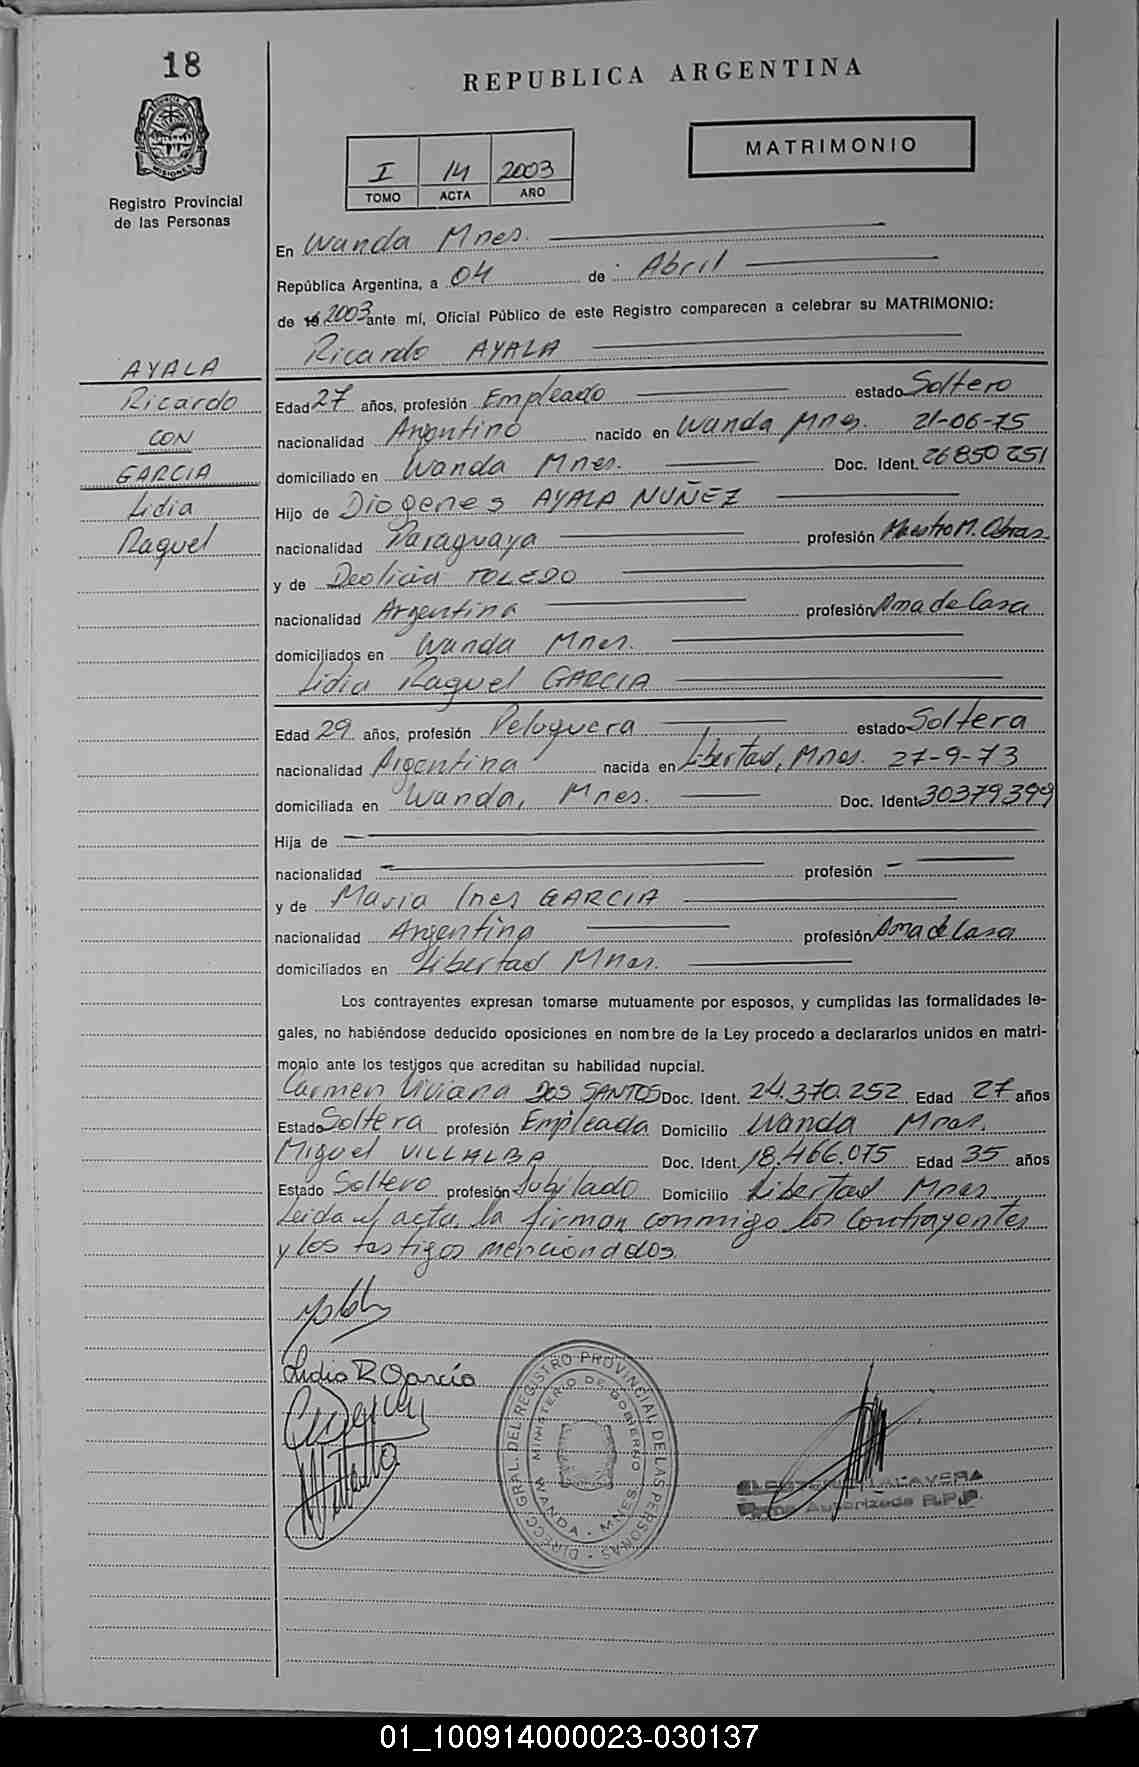 18
REPUBLICA ARGENTINA
MATRIMONIO
I 14 2003
TOMO ACTA AÑO
Registro Provincial
de las Personas
En Wanda Mnes.
República Argentina, a 04 de Abril
de 19 2003 ante mí, Oficial Público de este Registro comparecen a celebrar su MATRIMONIO:
Ricardo AYALA
AYALA
Ricardo
CON
GARCIA
Lidia
Raquel
Edad 27 años, profesión Empleado estado Soltero
nacionalidad Argentino nacido en Wanda Mnes. 21-06-75
domiciliado en Wanda Mnes. Doc. Ident. 26850251
Hijo de Diogenes AYALA NUÑEZ
nacionalidad Paraguaya profesión Maestro M. Obras.
y de Deolicia TOLEDO
nacionalidad Argentina profesión Ama de Casa
domiciliados en Wanda Mnes.
Lidia Raquel GARCIA
Edad 29 años, profesión Peluquera estado Soltera
nacionalidad Argentina nacida en Libertad, Mnes. 27-9-73
domiciliada en Wanda, Mnes. Doc. Ident. 30379399
Hija de
nacionalidad profesión
y de Maria Ines GARCIA
nacionalidad Argentina profesión Ama de Casa
domiciliados en Libertad Mnes.
Los contrayentes expresan tomarse mutuamente por esposos, y cumplidas las formalidades le-
gales, no habiéndose deducido oposiciones en nombre de la Ley procedo a declararlos unidos en matri-
monio ante los testigos que acreditan su habilidad nupcial.
Carmen Viviana DOS SANTOS Doc. Ident. 24.370.252 Edad 27 años
Estado Soltera profesión Empleada Domicilio Wanda Mnes.
Miguel VILLALBA Doc. Ident. 18.466.075 Edad 35 años
Estado Soltero profesión Jubilado Domicilio Libertad Mnes.
Leida el acta, la firman conmigo los Contrayentes
y los testigos mencionados
Lidia R Garcia
DIRECC. GRAL. DEL REGISTRO PROVINCIAL DE LAS PERSONAS
MINISTERIO DE GOBIERNO
WANDA - MNES
Firma Autorizada R.P.P.
01_100914000023-030137